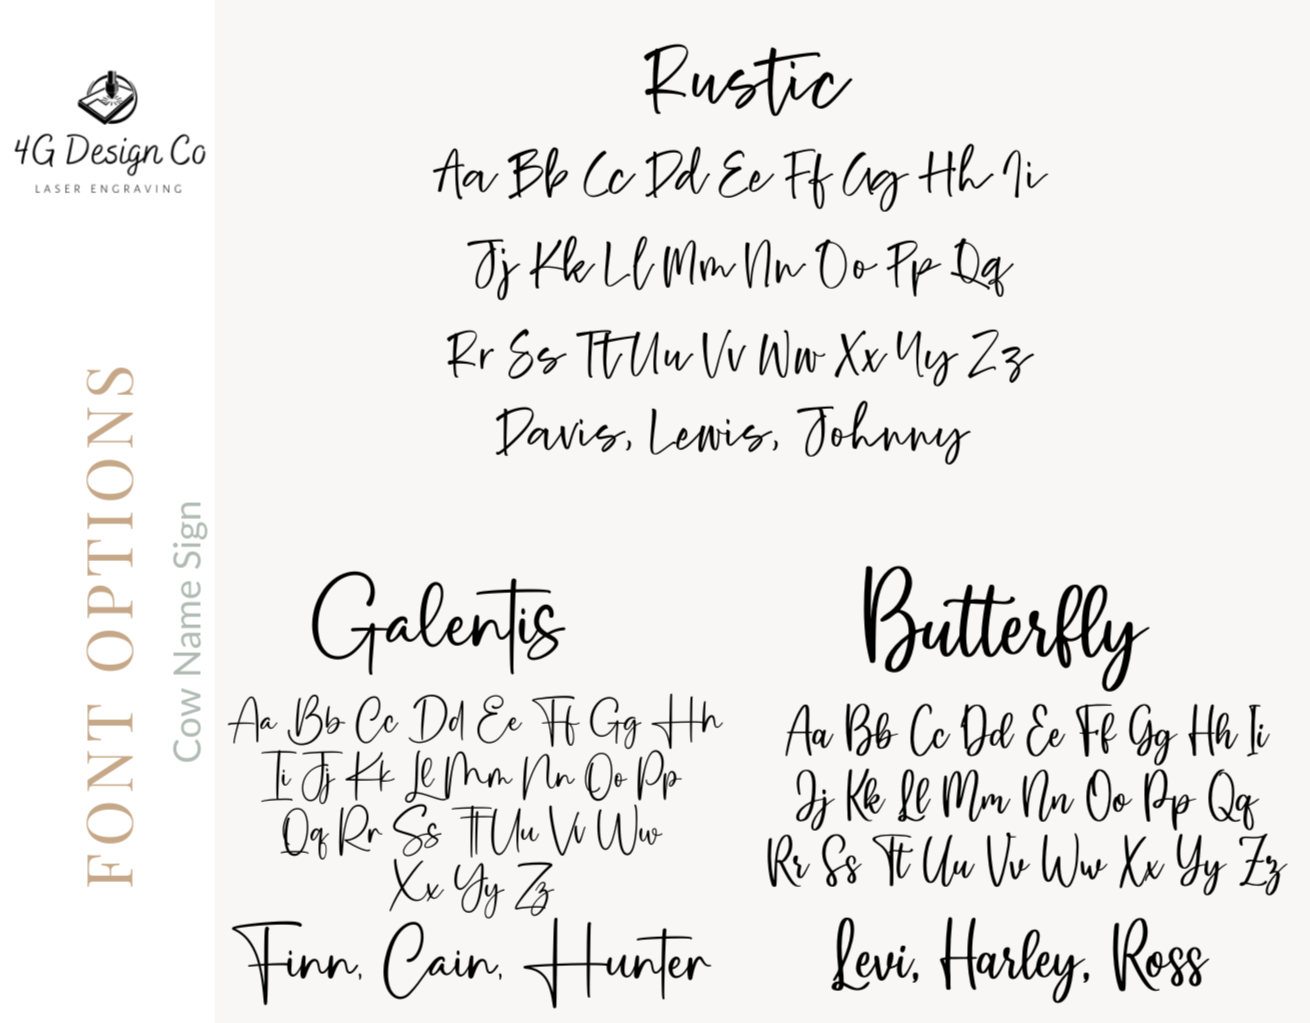 4G Design Co
LASER ENGRAVING
FONT OPTIONS
Cow Name Sign
Rustic
Aa Bb Cc Dd Ee Ff Gg Hh Ii
Jj Kk Ll Mm Nn Oo Pp Qq
Rr Ss Tt Uu Vv Ww Xx Yy Zz
Davis, Lewis, Johnny
Galentis
Aa Bb Cc Dd Ee Ff Gg Hh
Ii Jj Kk Ll Mm Nn Oo Pp
Qq Rr Ss Tt Uu Vv Ww
Xx Yy Zz
Finn, Cain, Hunter
Butterfly
Aa Bb Cc Dd Ee Ff Gg Hh Ii
Jj Kk Ll Mm Nn Oo Pp Qq
Rr Ss Tt Uu Vv Ww Xx Yy Zz
Levi, Harley, Ross